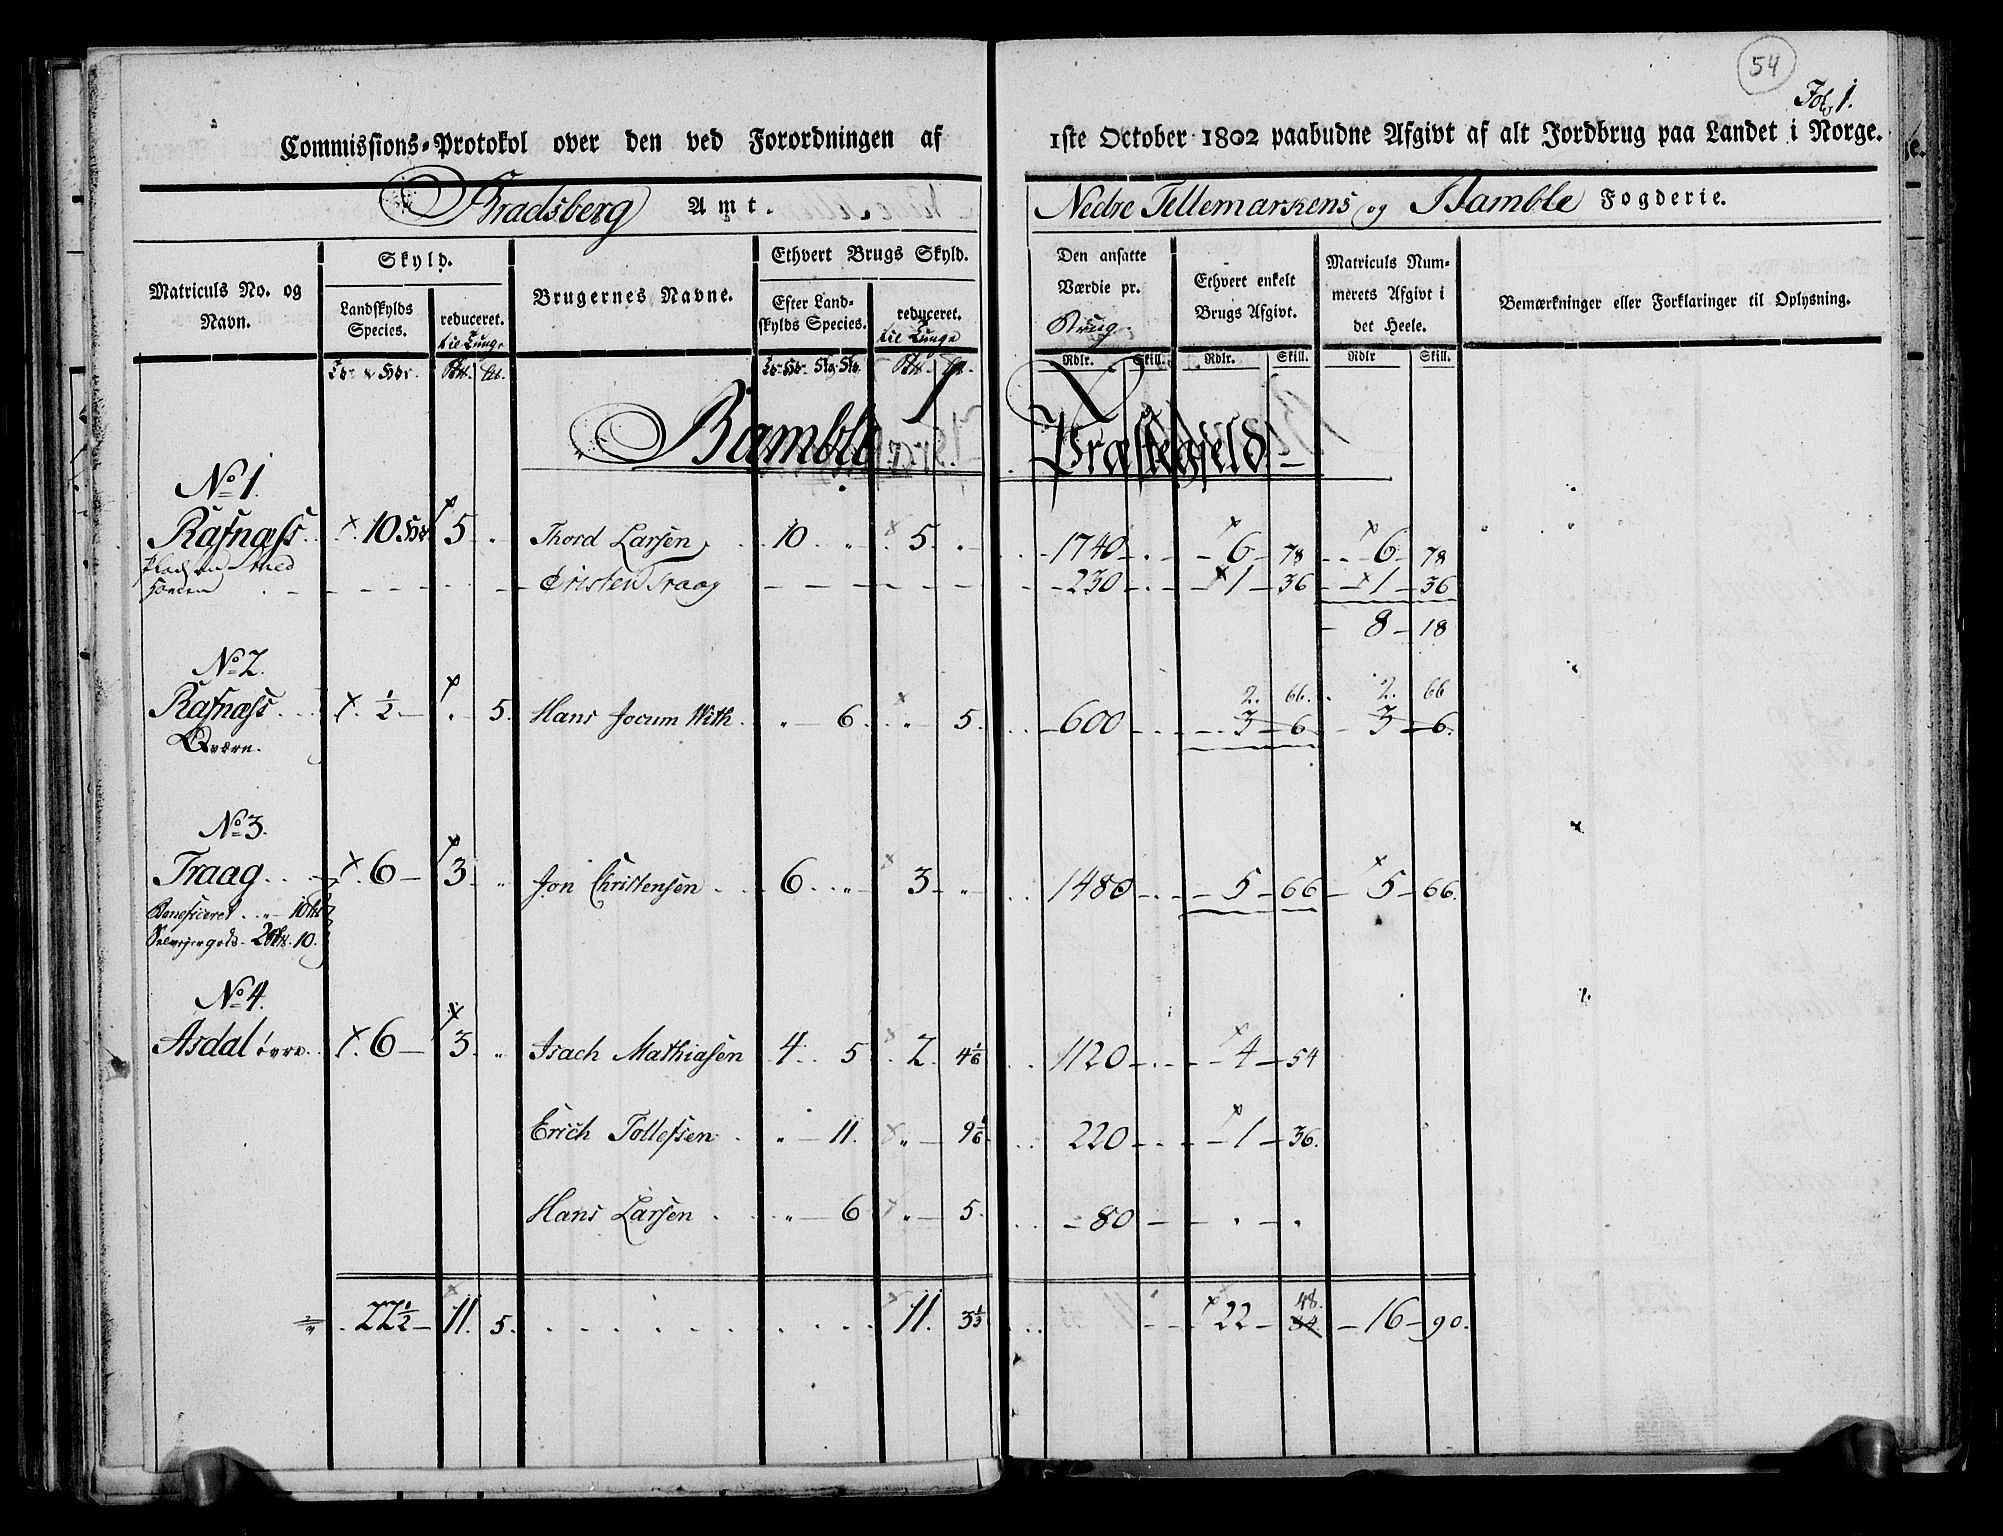 54
Fol. 1.
Commissions-Protokol over den ved Forordningen af 1ste October 1802 paabudne Afgivt af alt Jordbrug paa Landet i Norge.
Bradsberg Amt. Nedre Tellemarkens og Bamble Fogderie.
Matriculs No. og Navn.
Skyld.
Landskylds Species.
reduceret. til Tunge
Brugernes Navne.
Ethvert Brugs Skyld.
Efter Landskylds Species.
reduceret. til Tunge
Den ansatte Værdie pr. Brug.
Ethvert enkelt Brugs Afgivt.
Matriculs Nummerets Afgivt i det Heele.
Bemærkninger eller Forklaringer til Oplysning.
Rdlr. Skill. Rdlr. Skill. Rdlr Skill.
Bamble Præstegield
No 1.
Rafnæss 10 5 Thord Larsen 10 5 1740 6 78 6 78
Cristen Traag 230 1 36 1 36
8 18
No 2.
2. 66. 2. 66
Rafnæss ½ 5. Hans Jocum With 6. 5. 600 3 6 3 6.
Qværn.
No 3.
Traag 6 3 Jon Christensen 6 3 1480 5 66 5 66.
Beneficeret 10
10.
No 4.
Asdal øvre 6 3 Isach Mathiasen 4 5 2 4 1/6 1120 4 54
Erich Tollefsen 11. 9 1/6 220 1 36.
Hans Larsen 6 5. 80
48.
22½ 11. 5. 11. 3⅓ 22 84. 16 90.